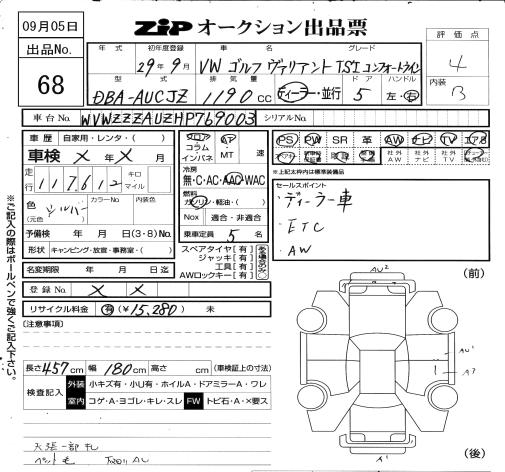 09月05日
出品No.
68
ZIP オークション出品票
評価点
4
内装
B
年式 初年度登録 車名 グレード
29年9月 VW ゴルフ ヴァリアント TSI コンフォートライン
型式 排気量 ドア ハンドル
DBA-AUCJZ 1190cc ディーラー・並行 5 左・右
車台No. WVWZZZAUZHP769003 シリアルNo.
車歴 自家用・レンタ・( )
車検 × 年 × 月
走行 117612 キロ マイル
色 (元色) シルバー カラーNo. 内装色
予備検 年 月 日(3・8)No.
形状 キャンピング・放宣・事務室・( )
名変期限 年 月 日迄
登録No. × ×
リサイクル料金 有 (¥15,280) 未
フロア コラム インパネ AT MT 速
冷房 無・C・AC・AAC・WAC
燃料 ガソリン・軽油・( )
Nox 適合・非適合
乗車定員 5 名
スペアタイヤ [有]
ジャッキ [有]
工具 [有]
AWロックキー [有]
PS PW SR 革 AW ナビ TV エアB
社外AW 社外ナビ 社外TV
※上記太枠内は標準装備品
セールスポイント
ディーラー車
ETC
AW
[注意事項]
長さ 457 cm 幅 180 cm 高さ cm (車検証上の寸法)
検査記入 外装 小キズ有・小U有・ホイルA・ドアミラーA・ワレ
室内 コゲ・A・ヨゴレ・キレ・スレ FW トビ石・A・×要ス
天張一部礼
※ご記入の際はボールペンで強くご記入下さい。
(前)
AU2
AU1
A3
A1
(後)